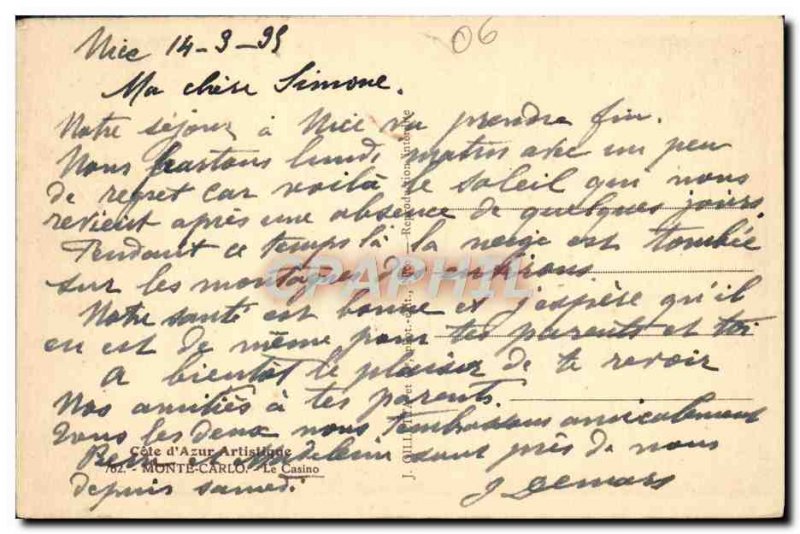 Nice 14-3-35
06
Ma chère Simone.
Notre séjour à Nice va prendre fin.
Nous partons lundi matin avec un peu
de regret car voilà le soleil qui nous
revient après une absence de quelques jours.
Pendant ce temps là la neige est tombée
sur les montagnes des environs.
Notre santé est bonne et j'espère qu'il
en est de même pour tes parents et toi
A bientôt le plaisir de te revoir
Nos amitiés à tes parents.
Tous les deux nous t'embrassons amicalement
et Madeleine sont près de nous
depuis samedi.
J Demars
Côte d'Azur Artistique
762. - MONTE-CARLO. - Le Casino
J. GILLETTA
Reproduction interdite
CPAPHIL